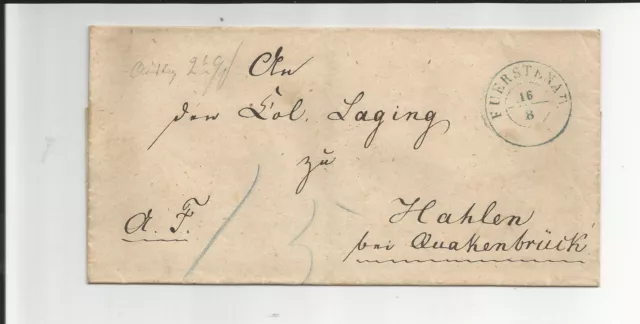 An
den Col. Laging
zu
Hahlen
bei Quakenbrück
A. F.
FUERSTENAU
16
8